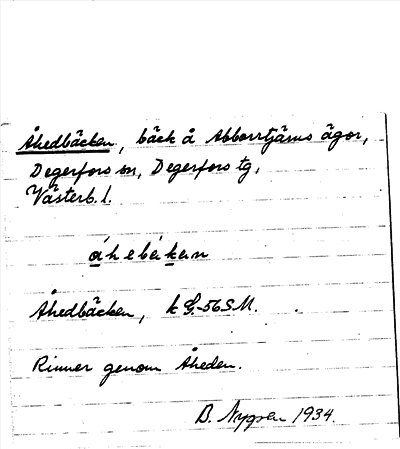 Åhedbäcken, bäck å Abborrtjärns ägor,
Degerfors sn, Degerfors tg,
Västerb. l.
áhebákan
Åhedbäcken, k G.-56 S.M.
Rinner genom Åheden.
B. Nygren 1934.